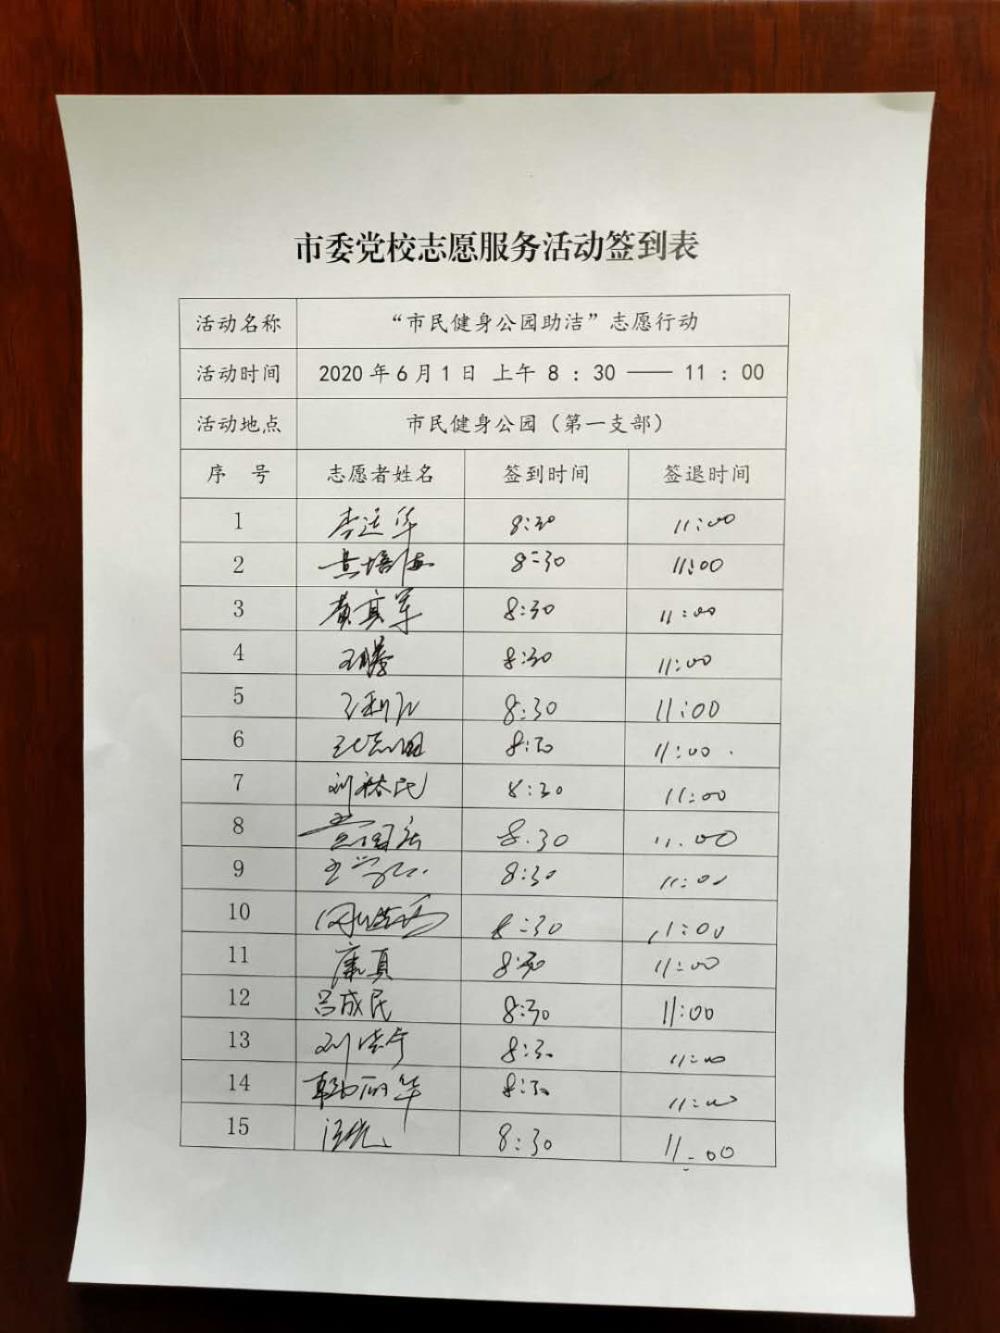 市委党校志愿服务活动签到表
活动名称 “市民健身公园助洁”志愿行动
活动时间 2020年6月1日 上午 8:30——11:00
活动地点 市民健身公园（第一支部）
序 号 志愿者姓名 签到时间 签退时间
1 李运华 8:30 11:00
2 8:30 11:00
3 8:30 11:00
4 王腾 8:30 11:00
5 8:30 11:00
6 8:30 11:00
7 8:30 11:00
8 8.30 11.00
9 8:30 11:00
10 8:30 11:00
11 康真 8:30 11:00
12 吕成民 8:30 11:00
13 8:30 11:00
14 韩丽华 8:30 11:00
15 8:30 11:00